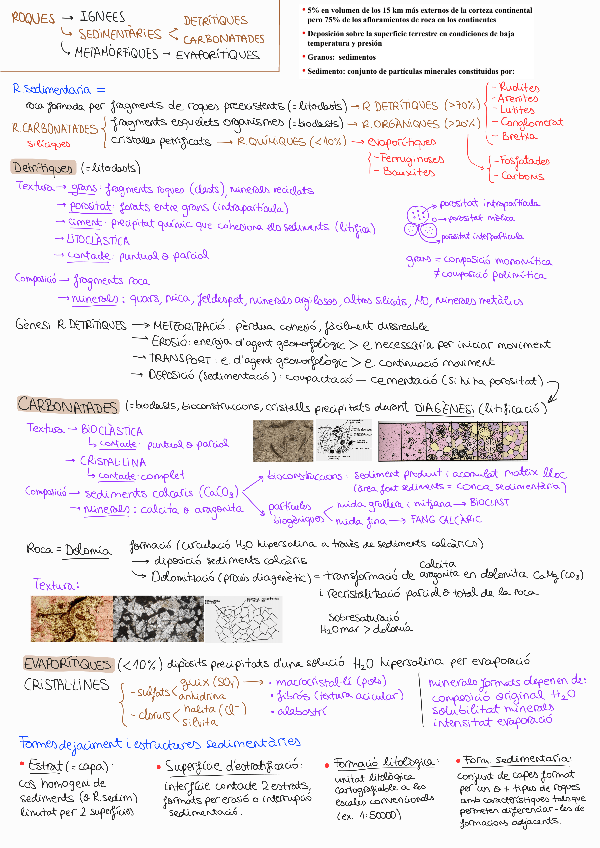 ROQUES → IGNEES
→ SEDIMENTÀRIES < DETRÍTIQUES
CARBONATADES
→ METAMÒRFIQUES → EVAPORÍTIQUES
• 5% en volumen de los 15 km más externos de la corteza continental
pero 75% de los afloramientos de roca en los continentes
• Deposición sobre la superficie terrestre en condiciones de baja
temperatura y presión
• Granos: sedimentos
• Sedimento: conjunto de partículas minerales constituidos por:
R sedimentària =
roca formada per fragments de roques preexistents (= litoclasts) → R DETRÍTIQUES (>70%)
- Rudites
- Arenites
- Lutites
- Conglomerat
- Bretxa
R. CARBONATADES
silíciques
fragments esquelets organismes (= bioclasts) → R. ORGÀNIQUES (>20%)
- Fosfatades
- Carbons
cristalls petrificats → R. QUÍMIQUES (<10%) → evaporítiques
- Ferruginoses
- Bauxites
Detrítiques (= litoclasts)
Textura → grans: fragments roques (clasts), minerals reciclats
→ porositat: forats entre grans (intrapartícula)
→ ciment: precipitat químic que cohesiona els sediments (litifica)
→ LITOCLÀSTICA
→ contacte: puntual o parcial
porositat intrapartícula
→ porositat mòltica
porositat interpartícula
grans = composició monomíctica
≠ composició polimíctica
Composició → fragments roca
→ minerals: quars, mica, feldespat, minerals argilosos, altres silicats, MO, minerals metàl·lics
Gènesi R DETRÍTIQUES → METEORITZACIÓ: pèrdua cohesió, fàcilment disgregable
→ EROSIÓ: energia d'agent geomorfològic > e necessària per iniciar moviment
→ TRANSPORT: e d'agent geomorfològic > e. continuació moviment
→ DEPOSICIÓ (sedimentació): compactació — cementació (si hi ha porositat)
CARBONATADES (= bioclasts, bioconstruccions, cristalls precipitats durant DIAGÈNESI (litificació)
Textura → BIOCLÀSTICA
↳ contacte: puntual o parcial
→ CRISTAL·LINA
↳ contacte: complet
Composició → sediments calcaris (CaCO₃)
→ minerals: calcita o aragonita
bioconstruccions: sediment produït i acumulat mateix lloc
(àrea font sediments = conca sedimentària)
partícules
biogèniques
mida grollera i mitjana → BIOCLAST
mida fina → FANG CALCARIC
Roca = Dolomia
formació (circulació H₂O hipersalina a través de sediments calcàrics)
→ deposició sediments calcàris
↳ Dolomitització (procés diagenètic) = transformació de calcita aragonita en dolomita CaMg(CO₃)
i recristalització parcial o total de la roca
Textura:
Sobresaturació
H₂O mar > dolomia
EVAPORÍTIQUES (<10%) dipòsits precipitats d'una solució H₂O hipersalina per evaporació
CRISTAL·LINES
- sulfats < guix (SO₄)
anhidrina
- clorurs < halita (Cl⁻)
silvita
• macrocristal·lí (pols)
• fibrós (textura acicular)
• alabastrí
minerals formats depenen de:
composició original H₂O
solubilitat minerals
intensitat evaporació
Formes de jaciment i estructures sedimentàries
• Estrat (= capa):
cos homogeni de
sediments (o R.sedim)
limitat per 2 superfícies
• Superfície d'estratificació:
interfície contacte 2 estrats,
formats per erosió o interrupció
sedimentació.
• Formació litològica:
unitat litològica
cartografiable a les
escales convencionals
(ex. 1:50000)
• Form. sedimentària:
conjunt de capes format
per un o + tipus de roques
amb característiques tals que
permeten diferenciar-les de
formacions adjacents.